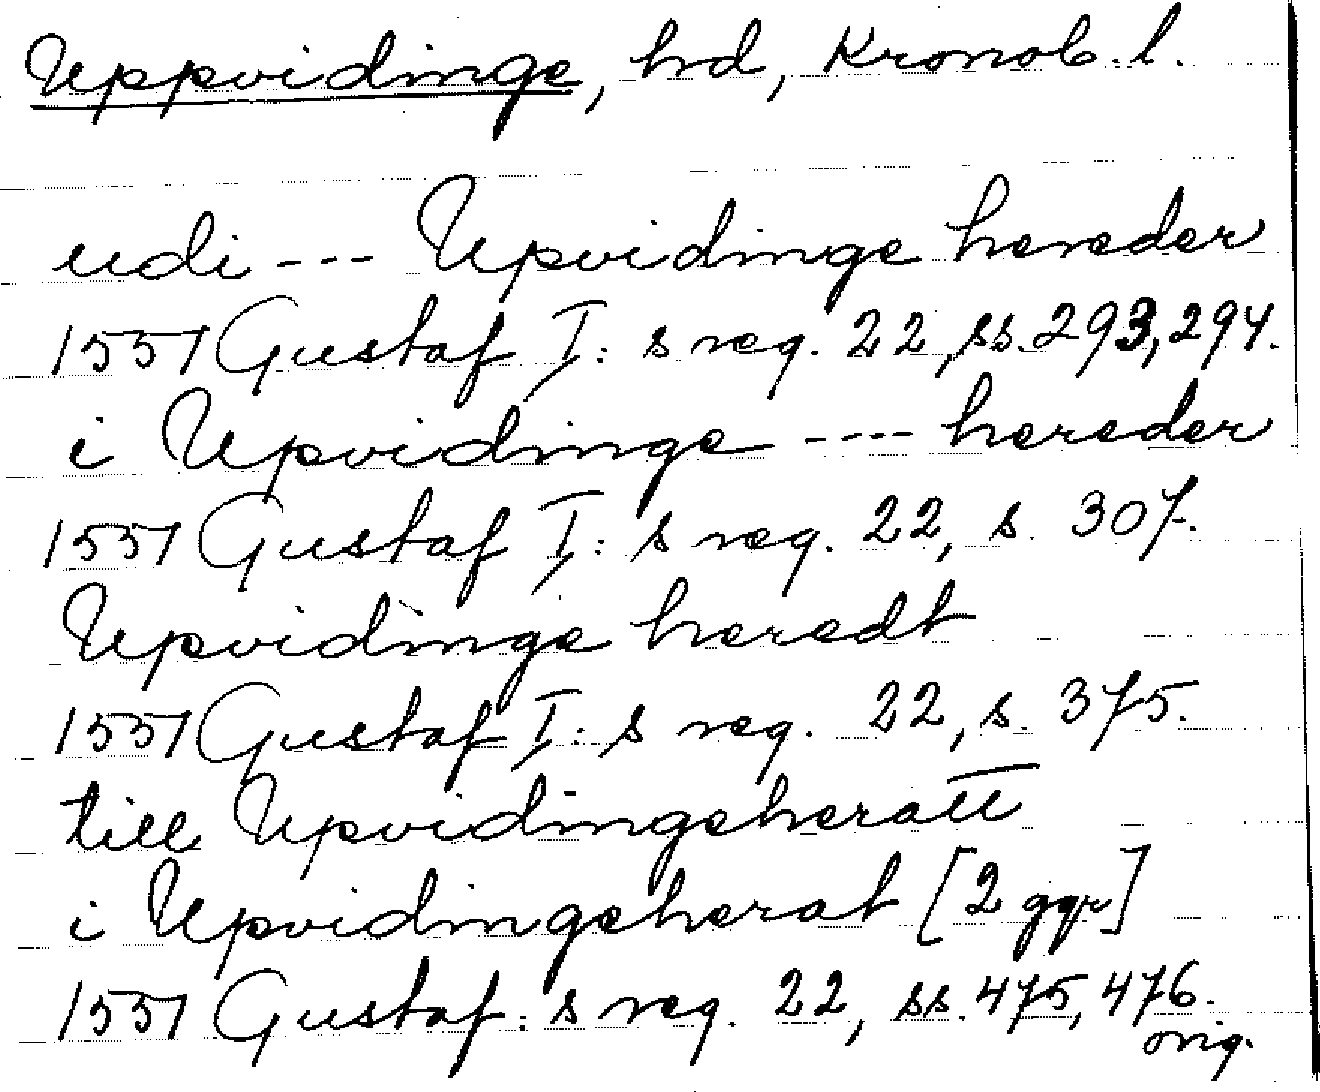 Uppvidinge, hd, Kronob. l.
udi --- Upvidinge hereder
1551 Gustaf I: s reg. 22, ss. 293, 294.
i Upvidinge ---- hereder
1551 Gustaf I: s reg. 22, s. 307.
Upvidinge heredt
1551 Gustaf I: s reg. 22, s. 375.
till Upvidingeheratt
i Upvidingeherat [2 ggr]
1551 Gustaf: s reg. 22, ss. 475, 476.
orig.